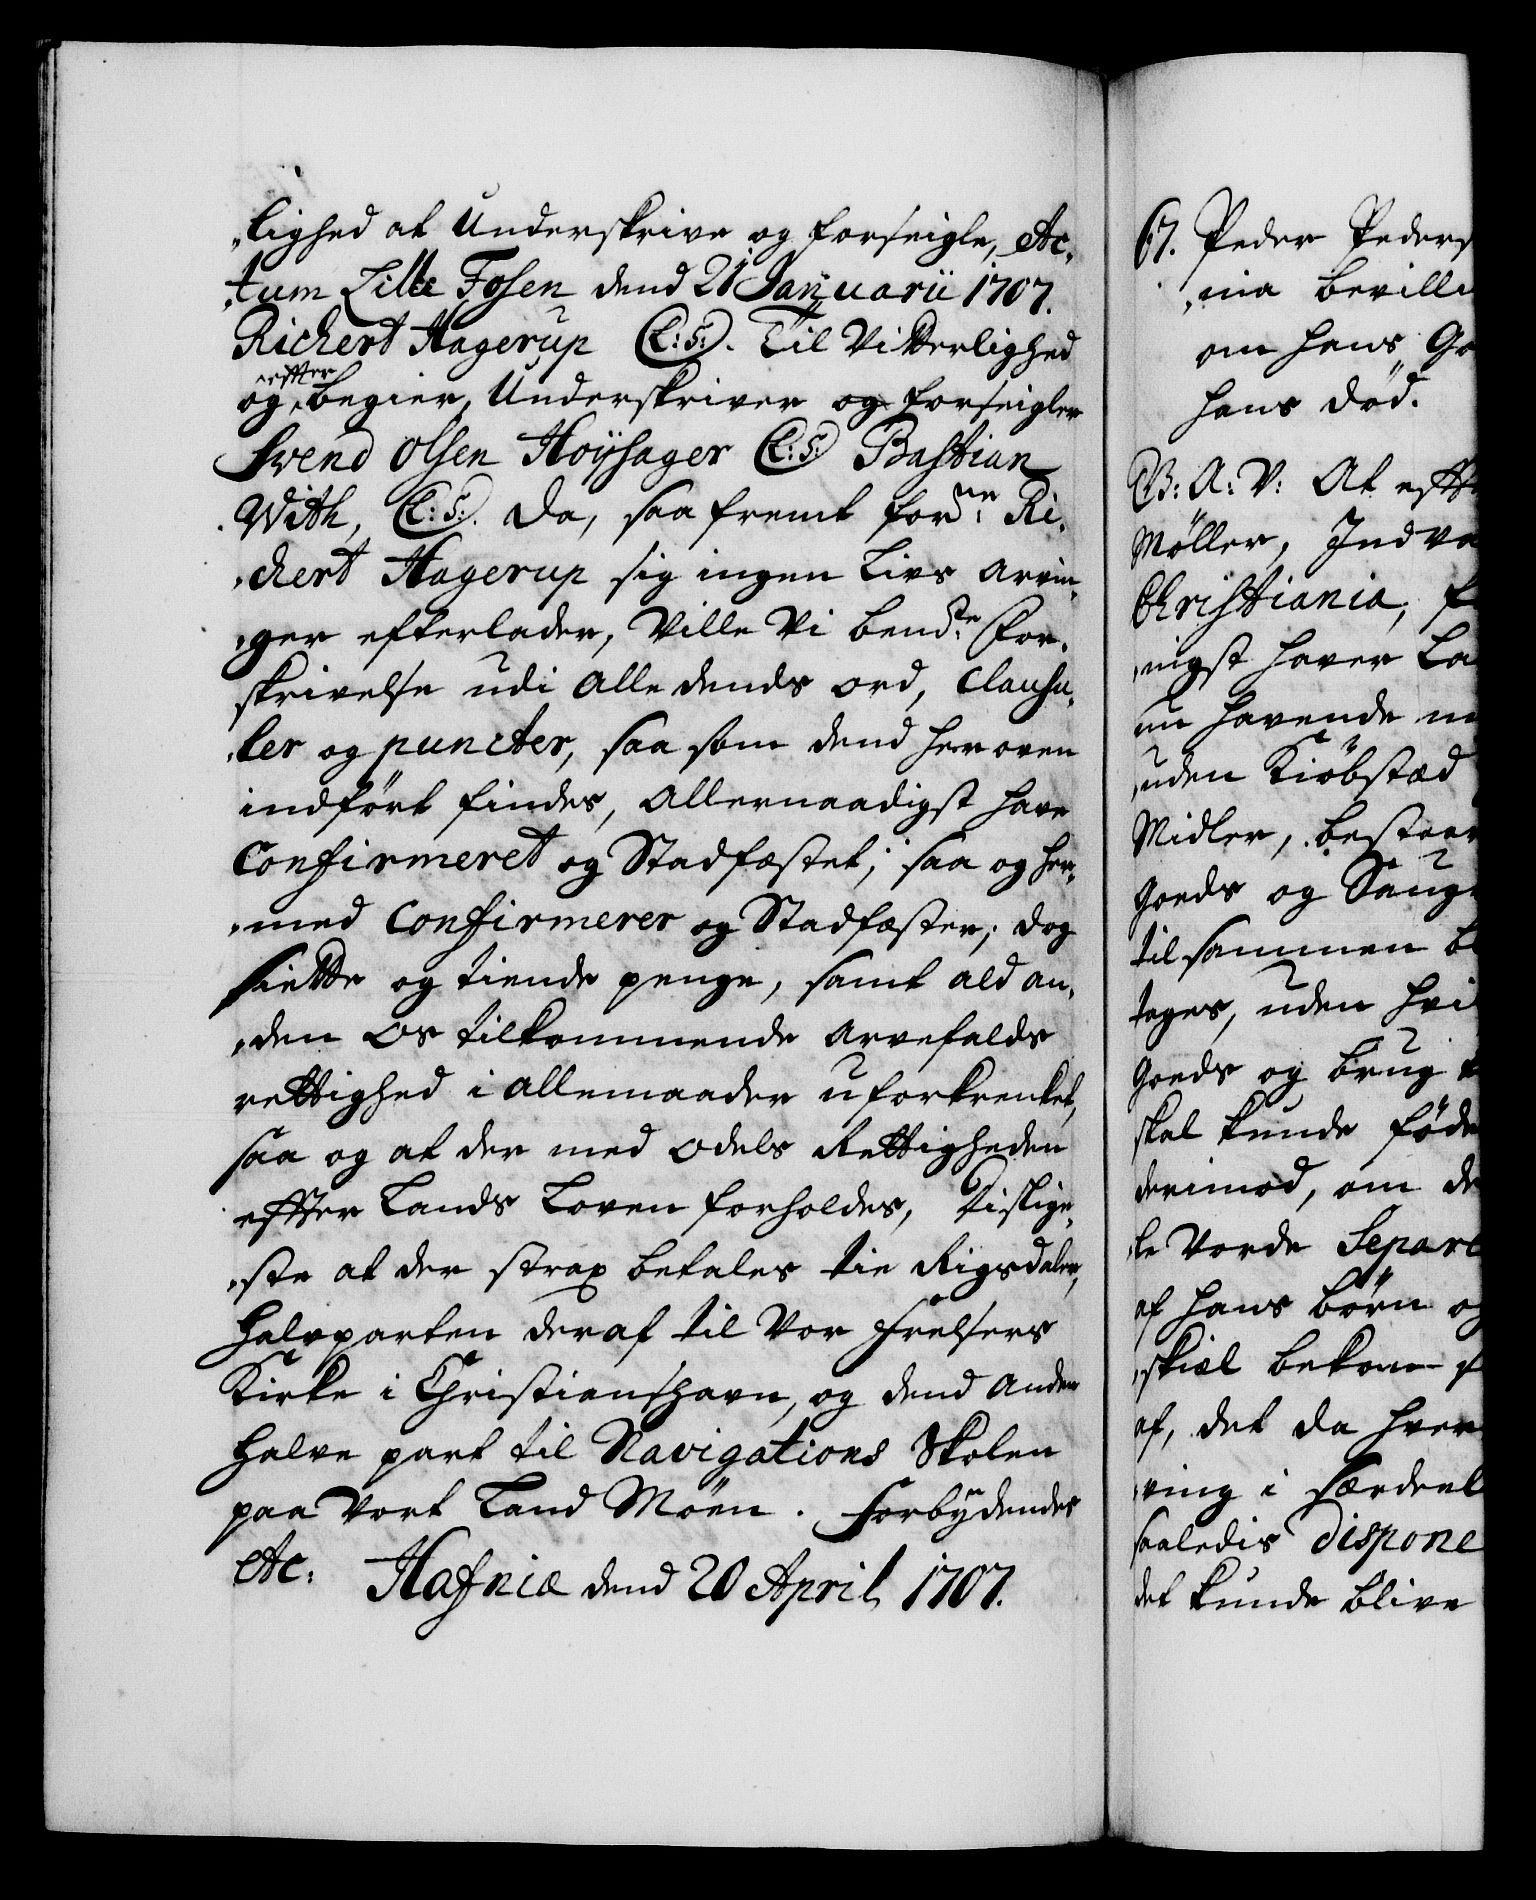 „lighed at Underskrive og forseigle, Ac„
„tum Lille Fosen dend 21 Januarii 1707.
Richert Hagerup (L:S:). Til Vitterlighed
og effter begier, Underskriver og forseigler
Svend Olsen Hoÿsager (L:S:) Bastian
With, (L:S:). Da, saa fremt forne: Ri„
„chert Hagerup sig ingen Livs Arvin„
„ger efterlader, Ville Vi bemte: For„
skrivelse udi alle dends ord, Clausu„
„ler og puncter, saa som dend her oven
indført findes, Allernaadigst have
Confirmeret og Stadfæstet; saa og her„
„med Confirmerer og Stadfæster; dog
siette og tiende penge, samt ald an„
„den Os tilkommende Arvefalds
rettighed i allemaader uforkrenket,
saa og at der med Odels Rettigheden
effter Lands Loven forholdes, Dislige„
„ste at der strax betales tie Rigsdaler,
Halvparten deraf til Vor Frelsers
Kirke i Christianshavn, og dend Anden
halve part til Navigations Skolen
paa Vort Land Møen. Forbÿdendes
etc. Hafniæ dend 20 April 1707.
67. Peder Peders
„nia bevilli
om hans Go
hans død.
G: A: V: At effte
Møller, Indva
Christiania, f
„nigst haver La
en havende
„uden Kiøbstæd
Midler, bestaar
Goeds og Sauge
tilsammen bl
tages, uden hvi
Goeds og brug
skal kunde føde
derimod, om de
„le Vorde Separe
af hans børn og
„skiæl bekomme
af, det da hver
„ning i særdeel
saaledis Dispone
det kunde blive